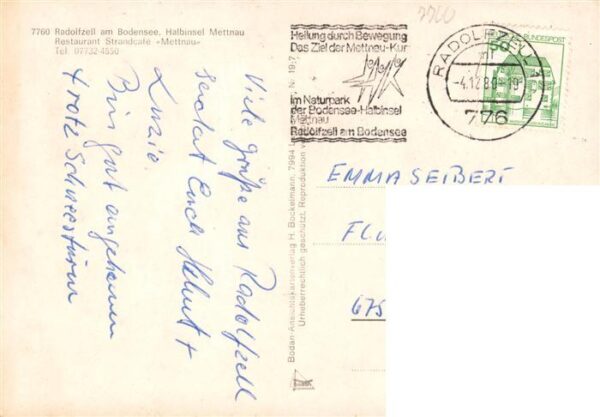 7760 Radolfzell am Bodensee, Halbinsel Mettnau
Restaurant Strandcafe »Mettnau«
Tel. 07732-4550
Viele grüße aus Radolfzell
sendet Euch Helmut +
Luzie.
Bin gut angekommen
trotz Schneesturm
Bodan-Ansichtskartenverlag H. Bockelmann, 7994
Urheberrechtlich geschützt. Reproduktion
Nr.
7760
Heilung durch Bewegung
Das Ziel der Mettnau-Kur
Im Naturpark
der Bodensee-Halbinsel
Mettnau
Radolfzell am Bodensee
RADOLFZELL 1
-4.12.80-19
776
50
BUNDESPOST
EMMA SEIBERT
675